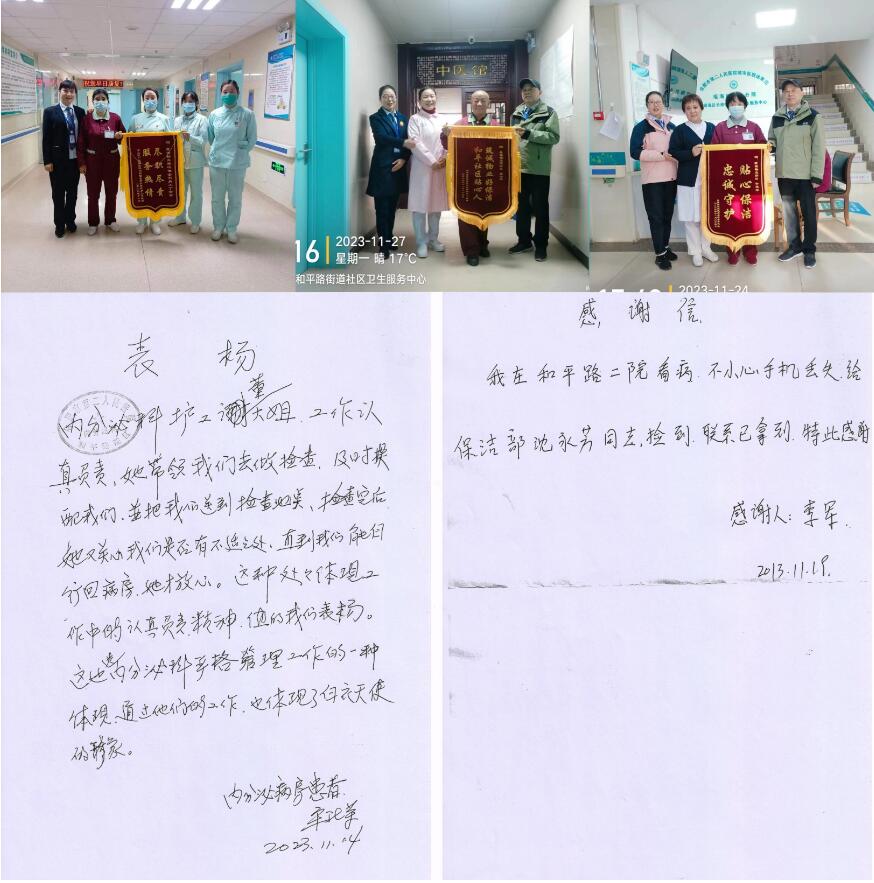 尽职尽责
服务热情
中医馆
筑诚物业好保洁
和平社区贴心人
16
2023-11-27
星期一 晴 17℃
和平路街道社区卫生服务中心
贴心保洁
忠诚守护
2023-11-24
表 杨
董
内分泌科护工谢大姐、工作认
真负责，她带领我们去做检查，及时搀
配我们、並把我们送到检查处类，检查完后
她又关心我们是否有不适之处、直到我们能自
行回病房，她才放心。这种处々体现工
作中的认真负责精神、值的我们表杨。
这也是内分泌科严格管理工作的一种
体现、通过他们的工作，也体现了白衣天使
的形象。
内分泌病房患者
2023.11.14
感 谢 信
我在和平路二院看病. 不小心手机丢失.给
保洁部沈永芳同志,捡到.联系已拿到.特此感谢
感谢人: 李军.
2013.11.19.